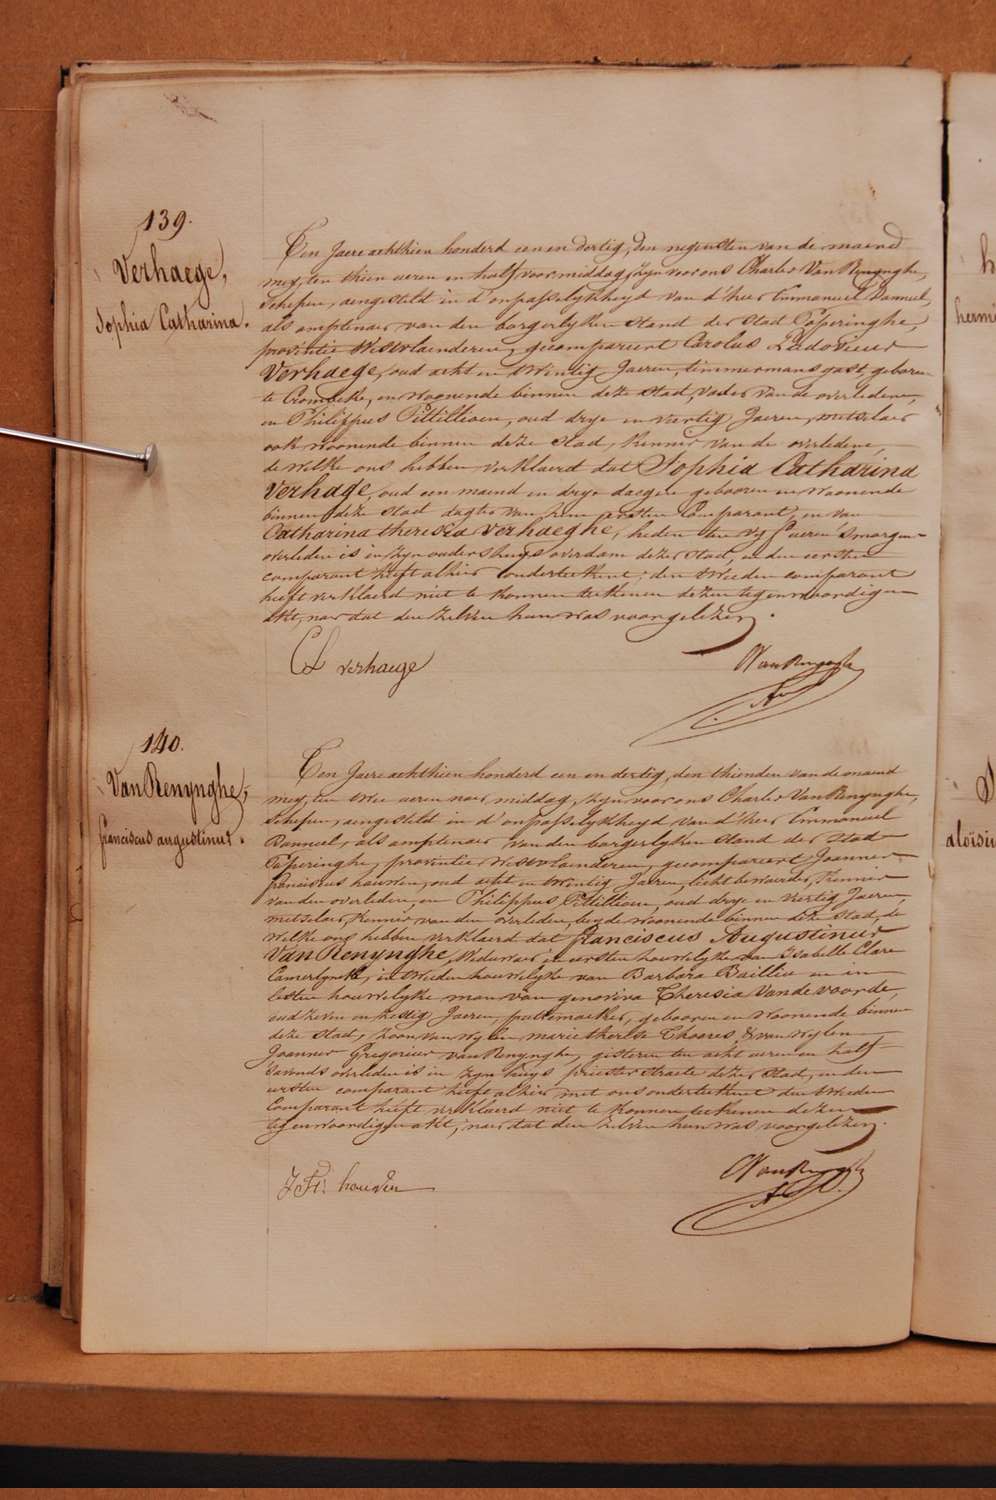 139.
Verhaege,
Sophia Catharina.
Ten Jaere achthien honderd eenen dertig, den negensten van de maend
mey, ten thien ueren en half voormiddag, zyn voor ons Charles Van Renynghe,
Schepen, aengesteld in d'onpasselykheyd van d'heer Emmanuel Banneel,
als amptenaer van den borgerlyken stand der Stad Poperinghe,
provintie Westvlaenderen, gecompareert Carolus Ludovicus
Verhaege, oud acht en twintig Jaeren, timmermans gast, geboren
te Crombeke, en woonende binnen deze stad, vader van de overledene,
en Philippus Pittillioen, oud drye en viertig Jaeren, metselaer
ook woonende binnen deze stad, kennis van de overledene,
de welke ons hebben verklaerd dat Sophia Catharina
Verhage, oud een maend en drye daegen gebooren en woonende
binnen deze stad dogter van hem eersten Comparant, en van
Catharina theresia Verhaeghe, heden ten vyf ueren 's morgens
overleden is in zyn ouders huys overdam dezer stad, en den eersten
comparant heeft alhier onderteekent; den tweeden comparant
heeft verklaerd niet te konnen teekenen dezen tegenwoordigen
akt, naer dat den zelven hun was voorgelezen.
CL verhaege
CVanRenynghe
140.
Van Renynghe,
franciscus augustinus.
Ten Jaere achthien honderd een en dertig, den thienden van de maend
mey, ten twee ueren naer middag, zyn voor ons Charles Van Renynghe,
Schepen, aengesteld in d'onpasselykheyd van d'heer Emmanuel
Banneel, als amptenaer van den borgerlyken stand der Stad
Poperinghe, provintie Westvlaenderen, gecompareert Joannes
franciscus houwen, oud acht en twintig Jaeren, licht bewaerder, kennis
van den overleden, en Philippus Pittillioen, oud drye en viertig Jaeren,
metselaer, kennis van den overleden, beyde woonende binnen deze stad, de
welke ons hebben verklaerd dat franciscus Augustinus
Van Renynghe, Weduwaer in eersten houwelyke van Isabelle Clare
Camerlynck, in tweeden houwelyke van Barbara Baillie en in
lesten houwelyke man van genoviva Theresia Vandevoorde,
oud zeven en zestig Jaeren, pottemaeker, gebooren en woonende binnen
deze stad, zoon van wylen marie therese Thoores, & van wylen
Joannes Gregorius van Renynghe, gisteren ten acht ueren en half
s'avonds overleden is in zyn huys, priester straete dezer stad, en den
eersten comparant heeft alhier met ons onderteekent den tweeden
Comparant heeft verklaerd niet te konnen teekenen dezen
tegenwoordigen akt, naer dat den zelven hun was voorgelezen.
J Fr. houwen
CVanRenynghe
aloïsiu